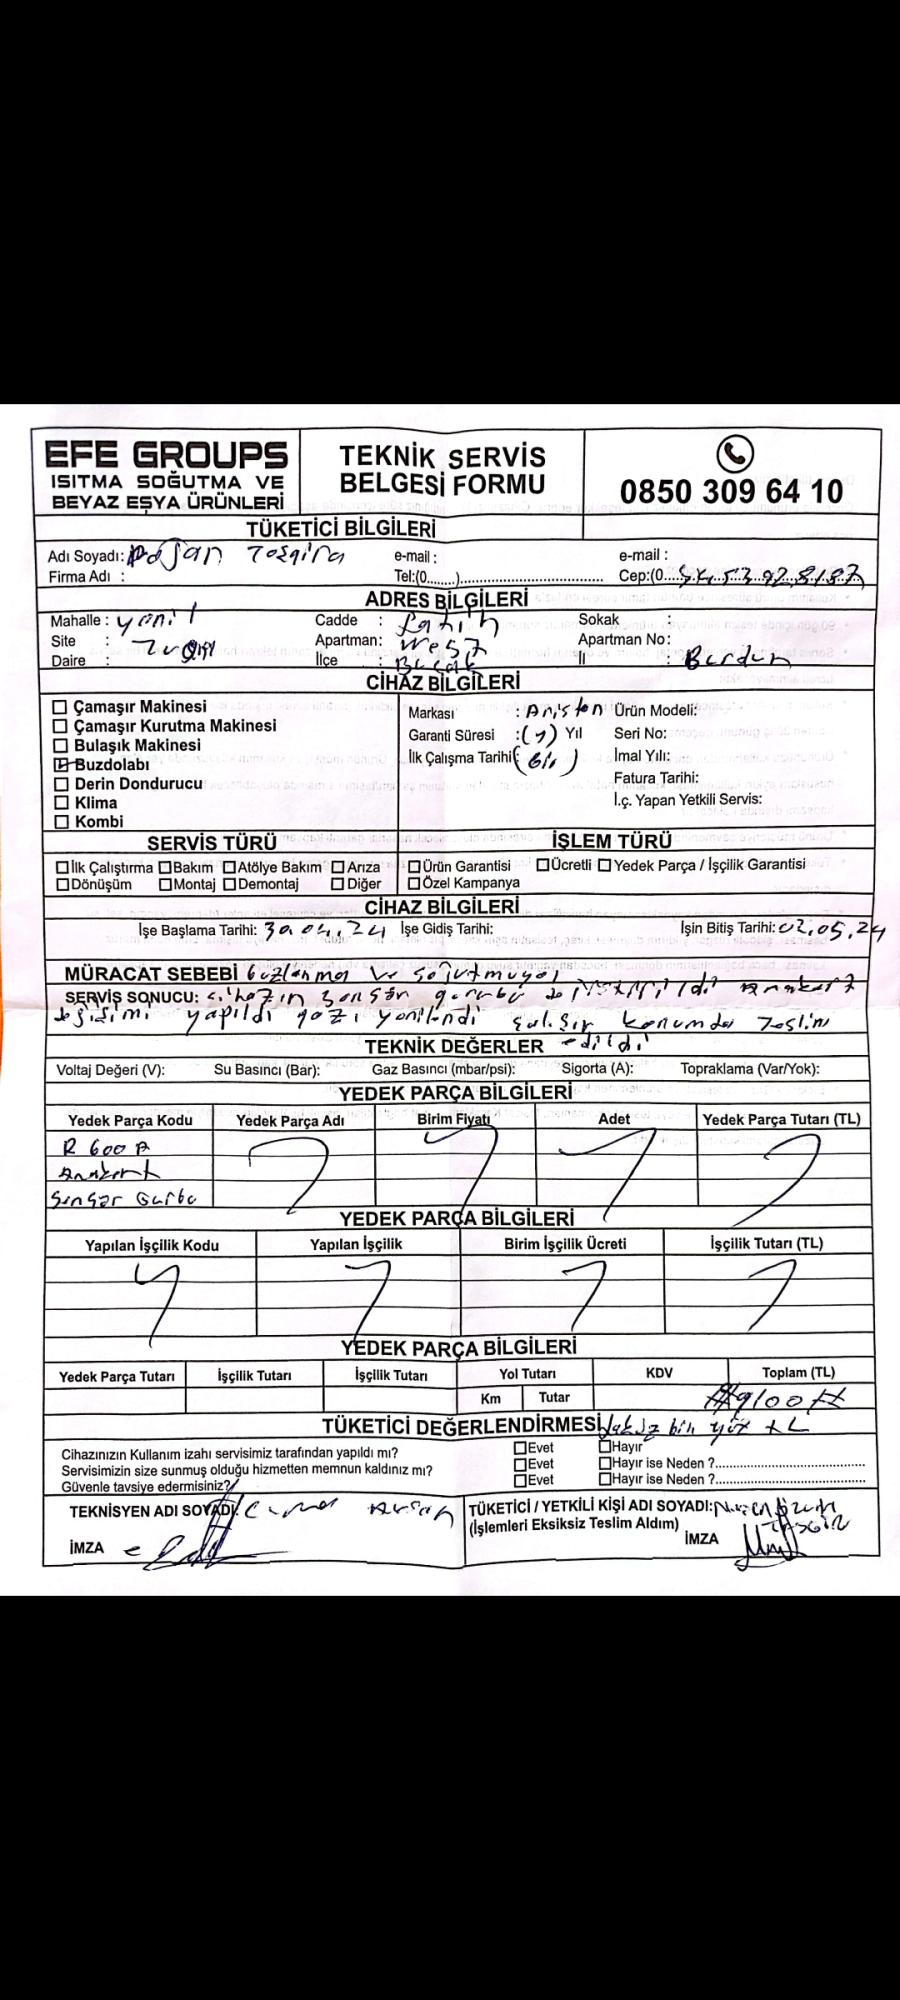 EFE GROUPS
ISITMA SOĞUTMA VE
BEYAZ EŞYA ÜRÜNLERİ
TEKNİK SERVİS
BELGESİ FORMU
0850 309 64 10
TÜKETİCİ BİLGİLERİ
Adı Soyadı: e-mail : e-mail :
Firma Adı : Tel:(0.......).................................... Cep:(0....
ADRES BİLGİLERİ
Mahalle : yeni Cadde : fatih Sokak :
Site : Apartman: Apartman No:
Daire : İlçe : Bucak İl : Burdur
CİHAZ BİLGİLERİ
Çamaşır Makinesi
Çamaşır Kurutma Makinesi
Bulaşık Makinesi
Buzdolabı
Derin Dondurucu
Klima
Kombi
Markası : Ariston Ürün Modeli:
Garanti Süresi :(1) Yıl Seri No:
İlk Çalışma Tarihi: (Bir) İmal Yılı:
Fatura Tarihi:
İ.ç. Yapan Yetkili Servis:
SERVİS TÜRÜ
İŞLEM TÜRÜ
İlk Çalıştırma Bakım Atölye Bakım Arıza Ürün Garantisi Ücretli Yedek Parça / İşçilik Garantisi
Dönüşüm Montaj Demontaj Diğer Özel Kampanya
CİHAZ BİLGİLERİ
İşe Başlama Tarihi: 30.04.24 İşe Gidiş Tarihi: İşin Bitiş Tarihi: 02.05.24
MÜRACAT SEBEBİ buzlanma ve soğutmuyor
SERVİS SONUCU: cihazın sensör gurubu değiştirildi
değişimi yapıldı gazı yenilendi çalışır konumda teslim
edildi
TEKNİK DEĞERLER
Voltaj Değeri (V): Su Basıncı (Bar): Gaz Basıncı (mbar/psi): Sigorta (A): Topraklama (Var/Yok):
YEDEK PARÇA BİLGİLERİ
Yedek Parça Kodu Yedek Parça Adı Birim Fiyatı Adet Yedek Parça Tutarı (TL)
R 600 A
Sensör Gurbu
YEDEK PARÇA BİLGİLERİ
Yapılan İşçilik Kodu Yapılan İşçilik Birim İşçilik Ücreti İşçilik Tutarı (TL)
YEDEK PARÇA BİLGİLERİ
Yedek Parça Tutarı İşçilik Tutarı İşçilik Tutarı Yol Tutarı KDV Toplam (TL)
Km Tutar 9100
TÜKETİCİ DEĞERLENDİRMESİ bin yüz TL
Cihazınızın Kullanım izahı servisimiz tarafından yapıldı mı? Evet Hayır
Servisimizin size sunmuş olduğu hizmetten memnun kaldınız mı? Evet Hayır ise Neden ?....................................
Güvenle tavsiye edermisiniz? Evet Hayır ise Neden ?....................................
TEKNİSYEN ADI SOYADI:
TÜKETİCİ / YETKİLİ KİŞİ ADI SOYADI:
(İşlemleri Eksiksiz Teslim Aldım)
İMZA İMZA